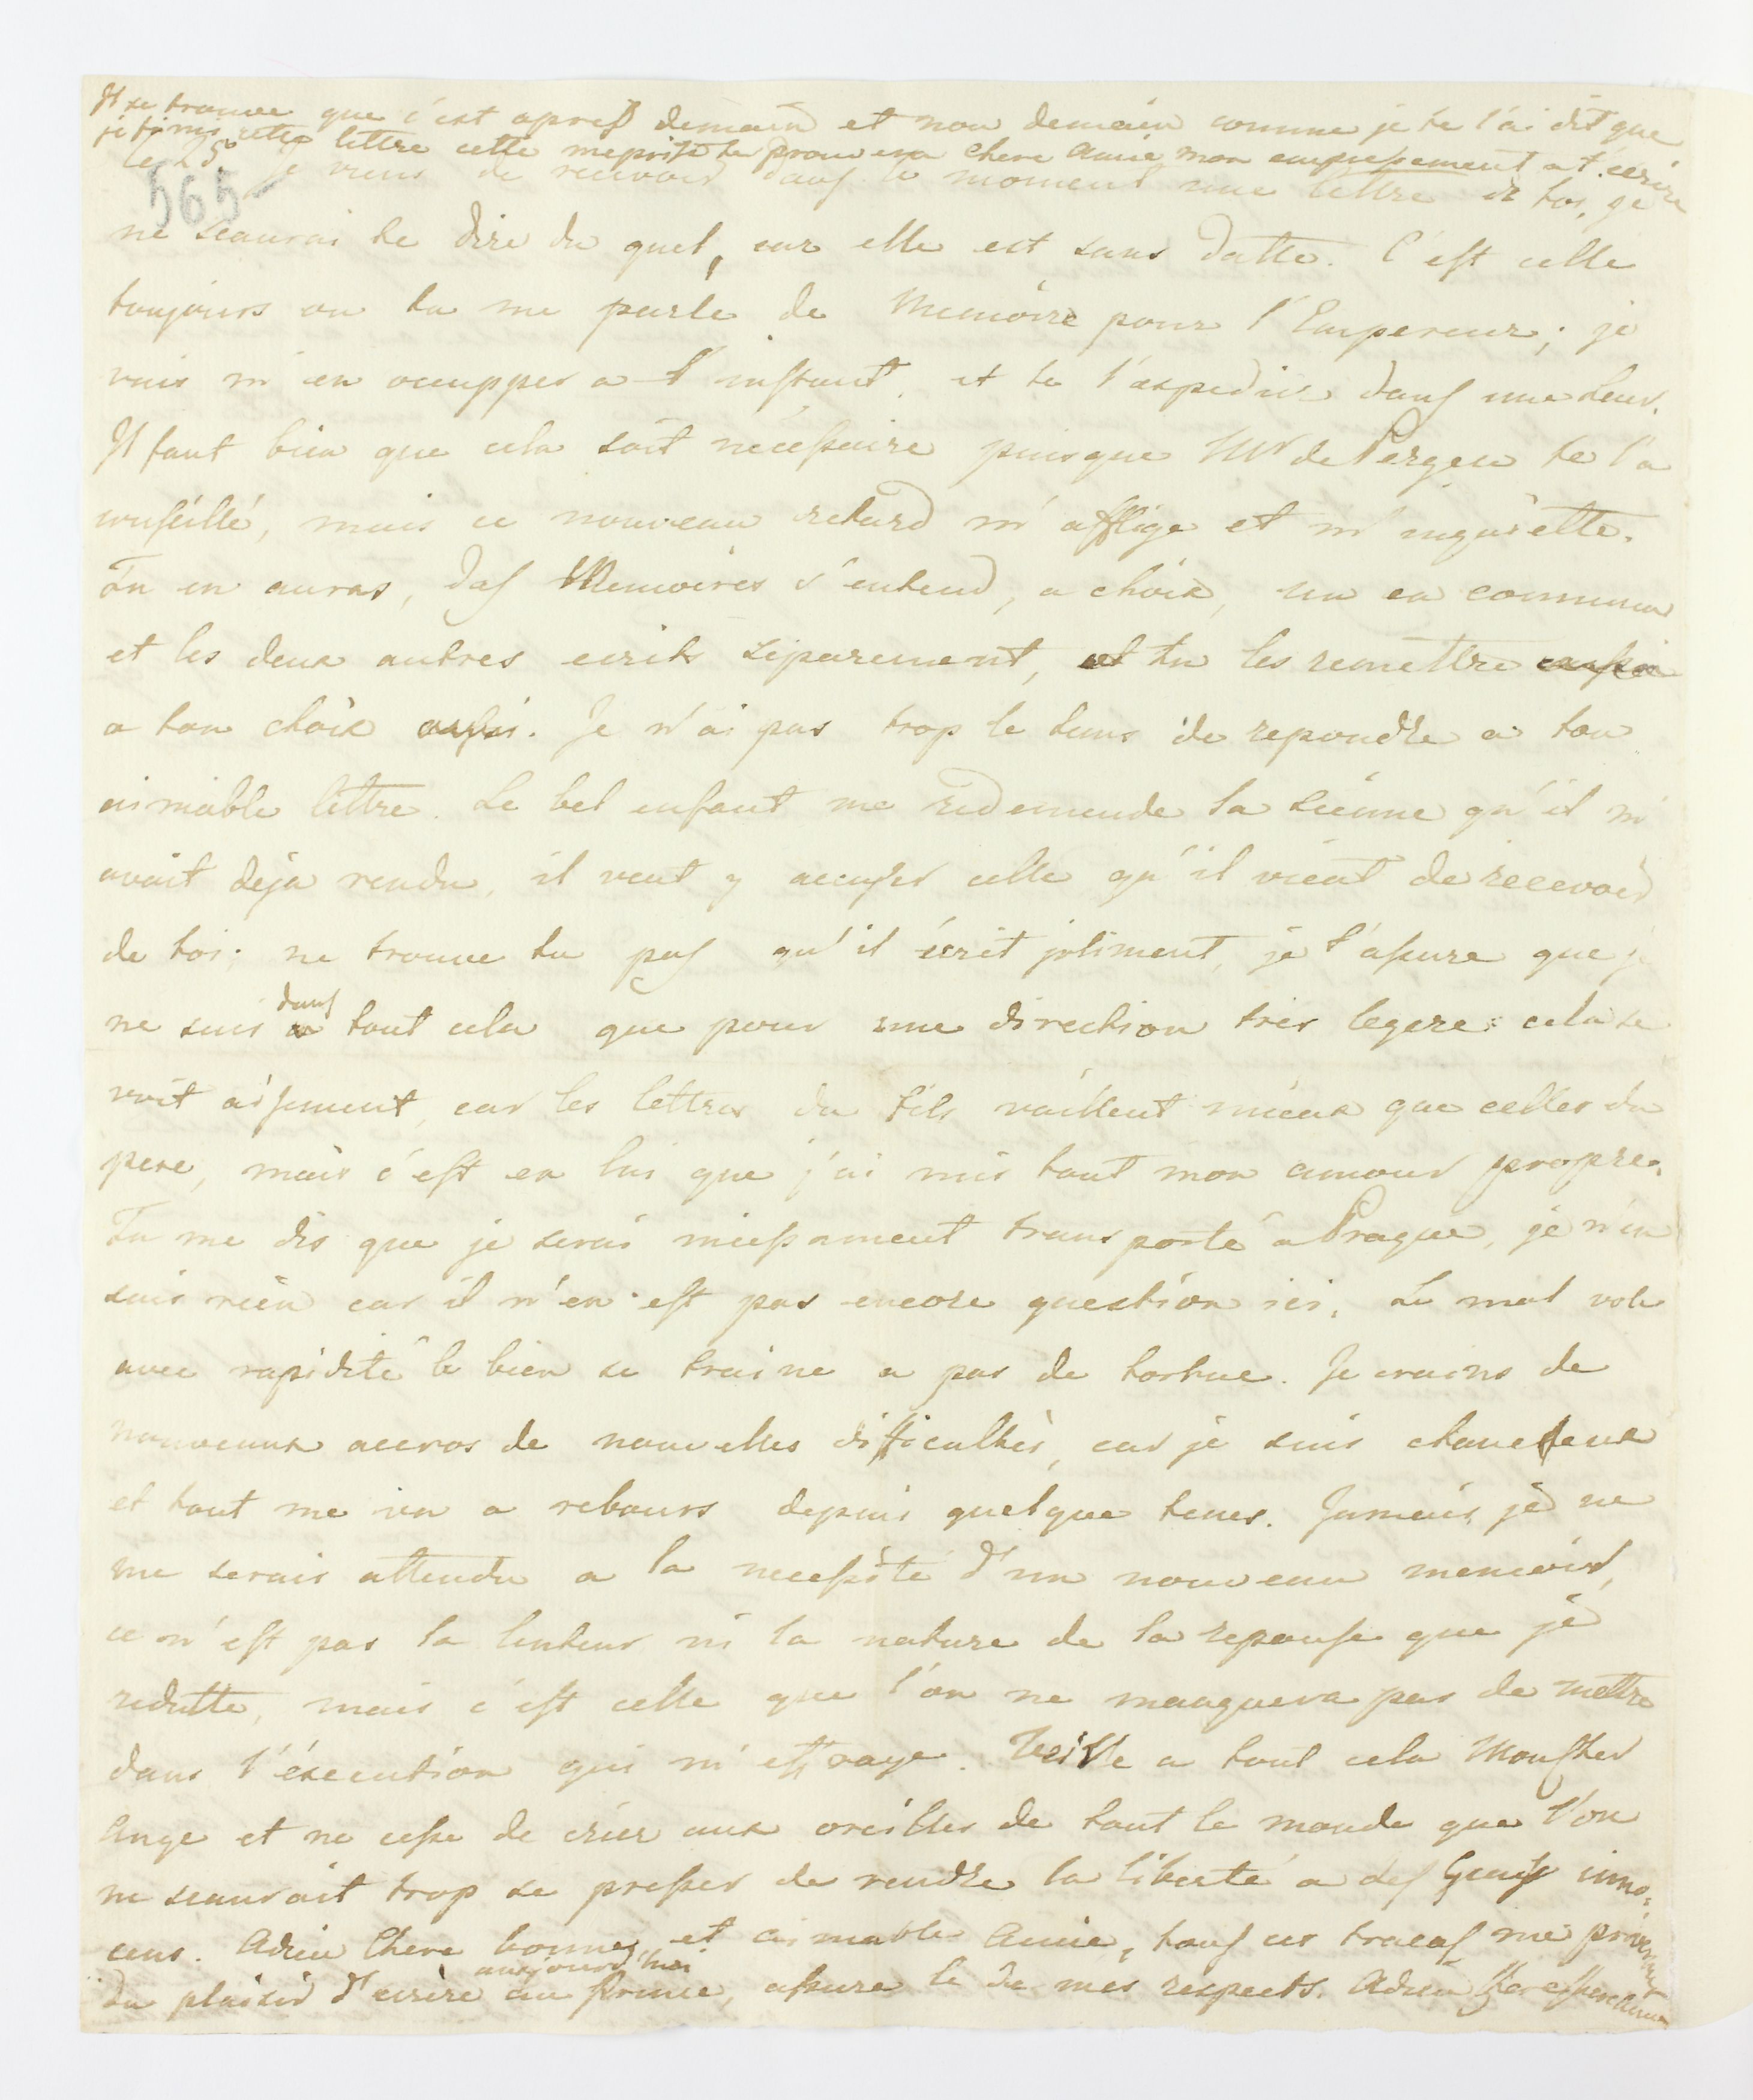 Il se trouve que c'est apres demain et non demain comme je te l'ai dit que
je finis cette lettre cette meprise te prouvera chere amie mon empressement a t'ecrire
le 25e je viens de recevoir dans le moment une lettre de toi, je
565
ne scaurai te dire du quel, car elle est sans datte. C'est celle
toujours ou tu me parle de Memoire pour l'Empereur; je
vais m'en occupper a l'instant, et te l'expedier dans une heur.
Il faut bien que cela soit necessaire puisque Mr de Pergen te l'a
conseillé, mais ce nouveau retard m'afflige et m'inquiette.
Tu en auras, des Memoires s'entend, a choix, un en commun
et les deux autres ecrits séparement, et tu les remettre
a ton choix aussi. Je n'ai pas trop le tems de repondre a ton
aimable lettre. Le bel enfant me redemende la sienne qu'il m'
avait deja rendu, il veut y accuser celle qu'il vient de recevoir
de toi; ne trouve tu pas qu'il écrit joliment, je t'assure que je
ne suis dans tout cela que pour une direction tres legere: cela se
voit aisement, car les lettres du fils vaillent mieux que celles du
pere, mais c'est en lui que j'ai mis tout mon amour propre.
Tu me dis que je serai incessament transporté a Prague, je n'en
sais rien car il n'en est pas encore question ici. Le mal vole
avec rapidité le bien se traine a pas de tortue. Je crains de
nouveaux accros de nouvelles difficultés, car je suis chanceux
et tout me va a rebours depuis quelque tems. Jamais je ne
me serais attendu a la necessité d'un nouveau memoire,
ce n'est pas la lenteur ni la nature de la reponse que je
redutte, mais c'est celle que l'on ne manquera pas de mettre
dans l'éxecution qui m'effraye. Veille a tout cela Mon cher
Ange et ne cesse de crier aux oreilles de tout le monde que l'on
ne scaurait trop se presser de rendre la liberté a des Gens inno-
cens. Adieu Chere bonne et aimable Amie, tous ces tracas me privent
du plaisir d'ecrire aujourd'hui au Prince, assure le de mes respects. Adieu